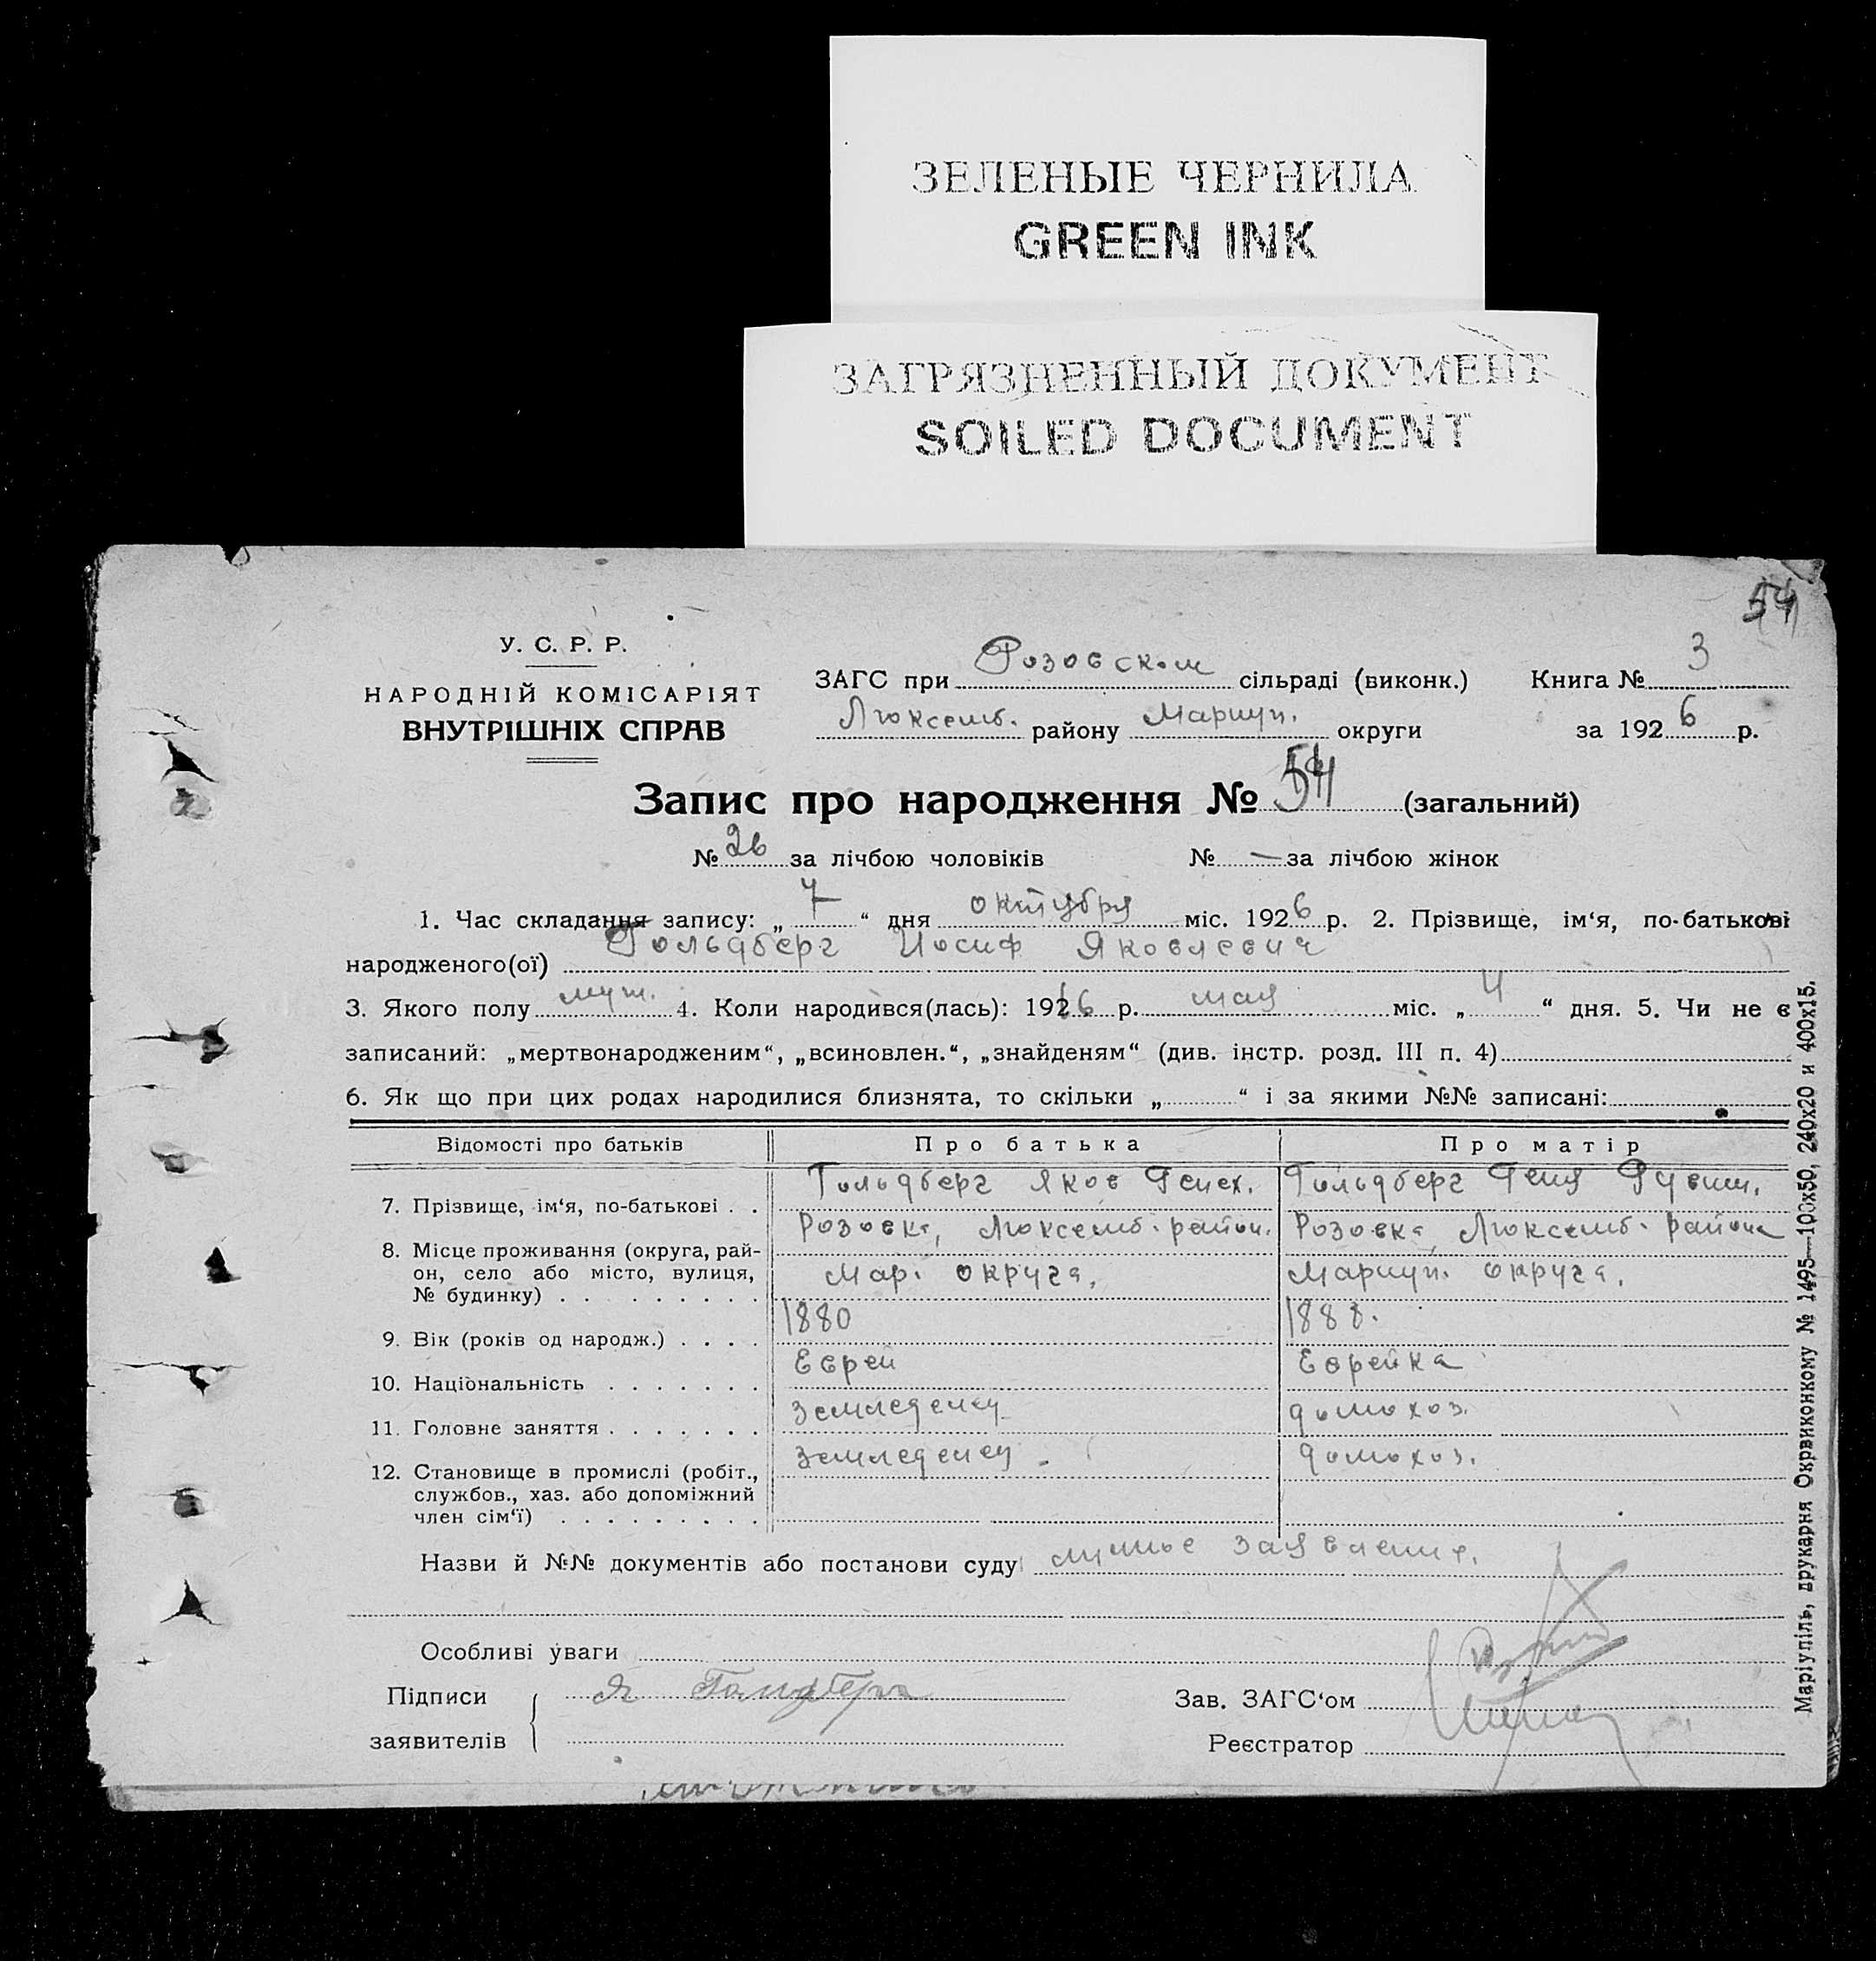 ЗЕЛЕНЫЕ ЧЕРНИЛА
GREEN INK
ЗАГРЯЗНЕННЫЙ ДОКУМЕНТ
SOILED DOCUMENT
54
У. С. Р. Р.
НАРОДНІЙ КОМІСАРІЯТ
ВНУТРІШНІХ СПРАВ
ЗАГС при Розовском сільраді (виконк.) Книга № 3
Люксемб. району Мариуп. округи за 1926 р.
Запис про народження № 54 (загальний)
№ 26 за лічбою чоловіків № — за лічбою жінок
1. Час складання запису: „ 7 “ дня октября міс. 1926 р. 2. Прізвище, ім‘я, по-батькові
народженого(ої) Гольдберг Иосиф Яковлевич
3. Якого полу муж. 4. Коли народився(лась): 1926 р. мая міс. „ 4 “ дня. 5. Чи не є
записаний: „мертвонародженим“, „всиновлен.“, „знайденям“ (див. інстр. розд. III п. 4)
6. Як що при цих родах народилися близнята, то скільки „ “ і за якими №№ записані:
Відомості про батьків Про батька Про матір
7. Прізвище, ім‘я, по-батькові . . Гольдберг Яков Генех. Гольдберг Геня Рувим.
8. Місце проживання (округа, рай- Розовка, Люксемб. район. Розовка, Люксемб. района
он, село або місто, вулиця, Мар. округа, Мариуп. округа.
№ будинку) . . . . . . . . .
9. Вік (років од народж.) . . . . 1880 1888.
10. Національність . . . . . . . Еврей Еврейка
11. Головне заняття . . . . . . . земледелец домохоз.
12. Становище в промислі (робіт., земледелец домохоз.
службов., хаз. або допоміжний
член сім‘ї) . . . . . . . . .
Назви й №№ документів або постанови суду личное заявление.
Особливі уваги
Підписи Я Гольдберг
Зав. ЗАГС‘ом
заявителів
Реєстратор
Маріупіль, друкарня Окрвиконкому № 1495—100х50, 240х20 и 400х15.